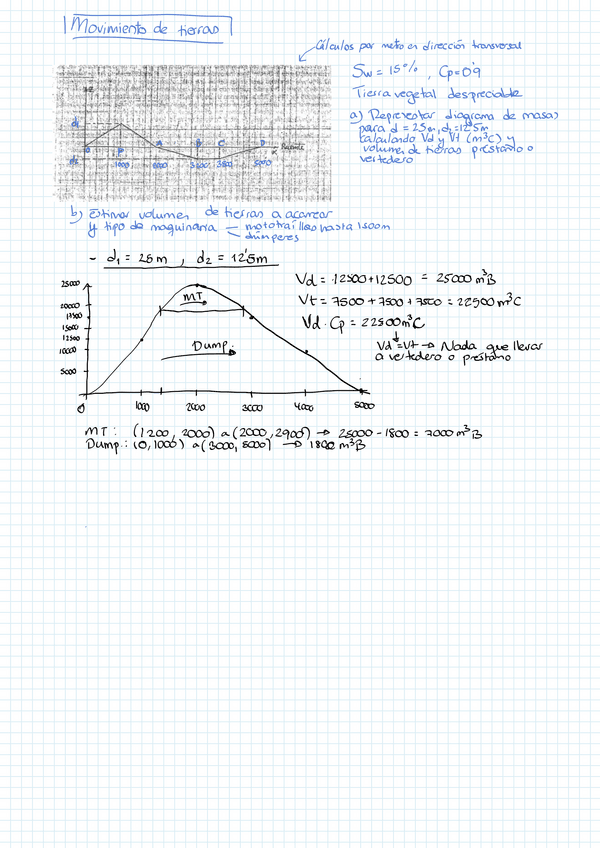 Movimiento de tierras
Cálculos por metro en dirección transversal
Sw = 15%, Cp = 0'9
Tierra vegetal despreciable
a) Representar diagrama de masas
para d = 25m, d₂ = 12'5m
calculando Vd y Vt (m³C) y
volumen de tierras préstamo o
vertedero
d₁
O P A B C D Rasante
1000 2000 5000
b) Estimar volumen de tierras a acarrear
y tipo de maquinaria — mototraíllas hasta 1500m
— dúmperes
- d₁ = 25m, d₂ = 12'5m
Vd = 12500 + 12500 = 25000 m³B
Vt = 7500 + 7500 + 7500 = 22500 m³C
Vd · Cp = 22500 m³C
Vd = Vt → Nada que llevar
a vertedero o préstamo
25000
20000
17500
15000
12500
10000
5000
MT
Dump.
0 1000 2000 3000 4000 5000
MT: (1200, 2000) a (2000, 2900) → 25000 - 1800 = 7000 m³B
Dump.: (0, 1000) a (3000, 5000) → 1800 m³B